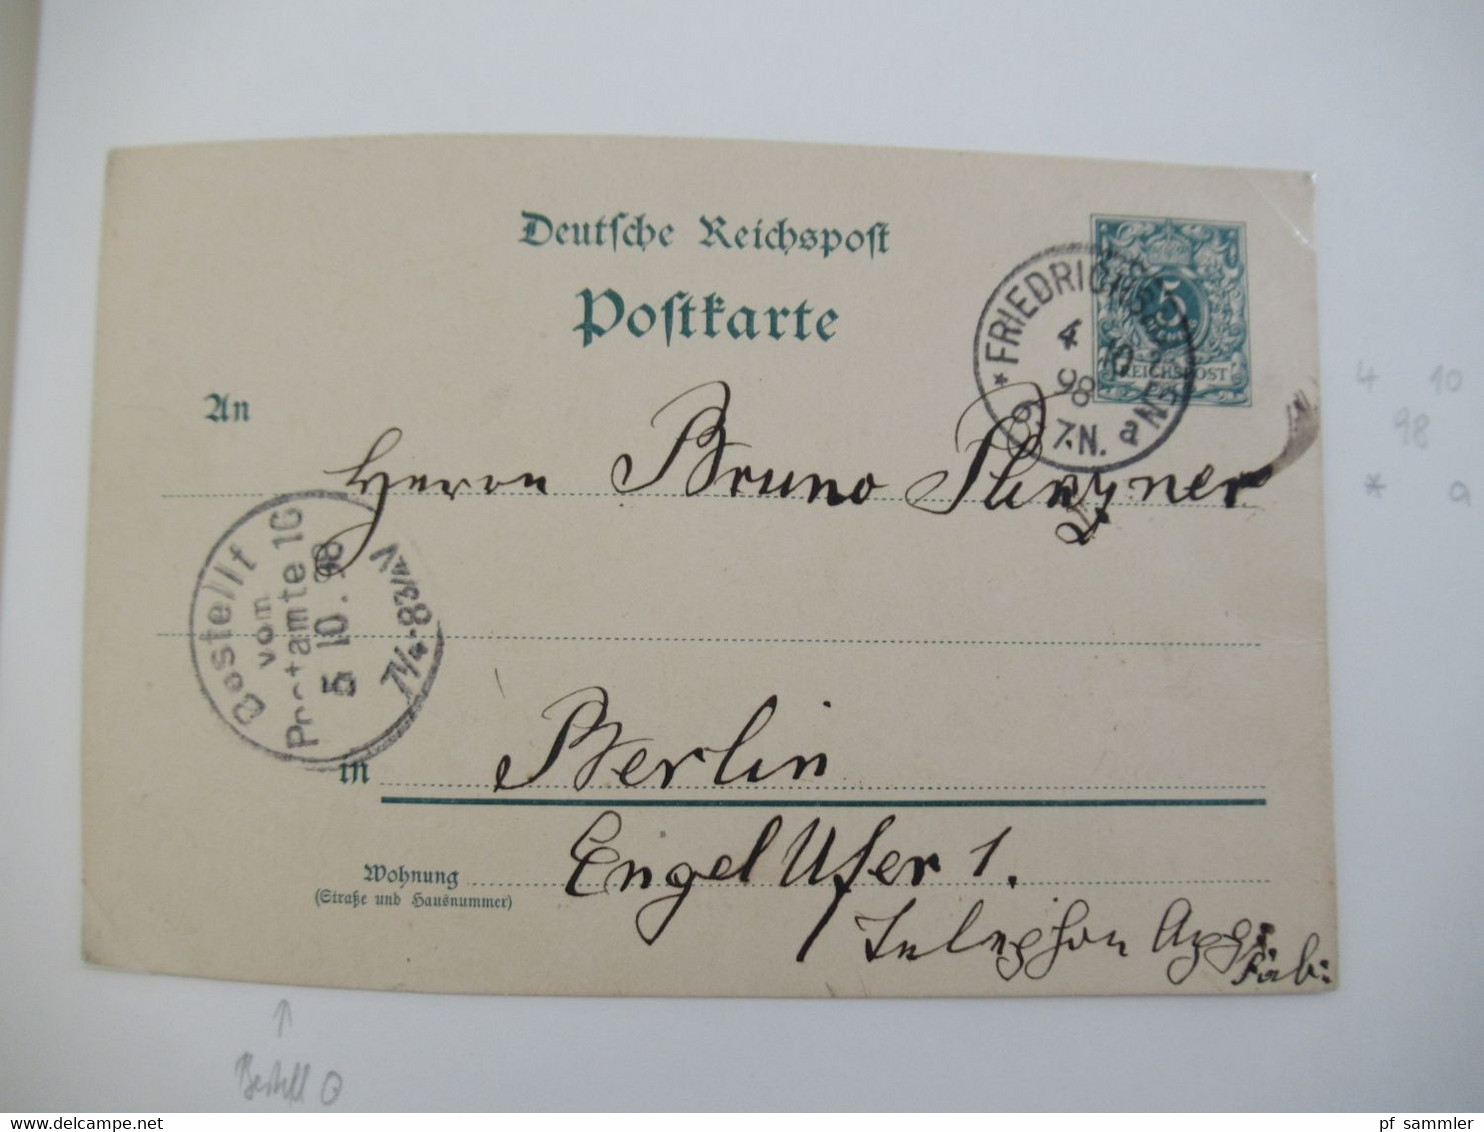 Deutsche Reichspost
Postkarte
5
REICHSPOST
4 10
98
7.N. a
An
Herrn Bruno
Bestellt
vom
Postamte 16
5 10. 98
7¼-8¾V
in Berlin
Wohnung Engel Ufer 1.
(Straße und Hausnummer)
Telephon App:
Fab:
4 10
98
* a
Bestell O
pf sammler